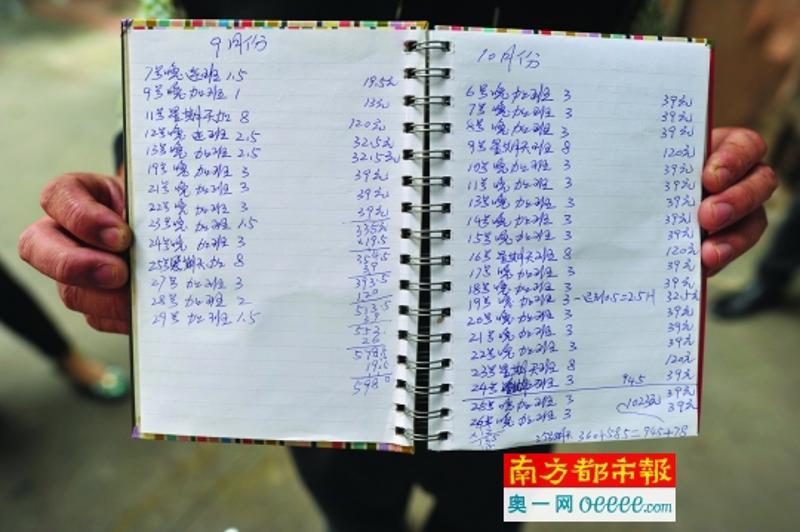 9月份
7号晚 连班 1.5 19.5元
9号晚 加班 1 13元
11号星期天加 8 120元
12号晚 连班 2.5 32.5元
13号晚 加班 2.5 32.5元
19号晚 加班 3 39元
21号晚 加班 3 39元
22号晚 加班 3 39元
23号晚 加班 1.5
24号晚 加班 3
25号星期天加 8
27号 加班 3
28号 加班 2
29号 加班 1.5
335元
+19.5
354.5
39
393.5
120
513.5
39
552.
26
578.5
19.5
598.0
10月份
6号晚 加班 3 39元
7号晚 加班 3 39元
8号晚 加班 3 39元
9号星期天班 8 120元
10号晚 加班 3 39元
11号晚 加班 3 39元
13号晚 加班 3 39元
14号晚 加班 3 39元
15号晚 加班 3 39元
16号星期天班 8 120元
17号晚 加班 3 39元
18号晚 加班 3 39元
19号晚 加班 3-迟到0.5=2.5H 32.5元
20号晚 加班 3 39元
21号晚 加班 3 39元
22号晚 加班 3 39元
23号星期天班 8 120元
24号晚 加班 3 945 39元
25号晚 加班 3 1023元 39元
26号晚 加班 3 39元
360+585=945+78
南方都市報
奥一网 oeeee.com